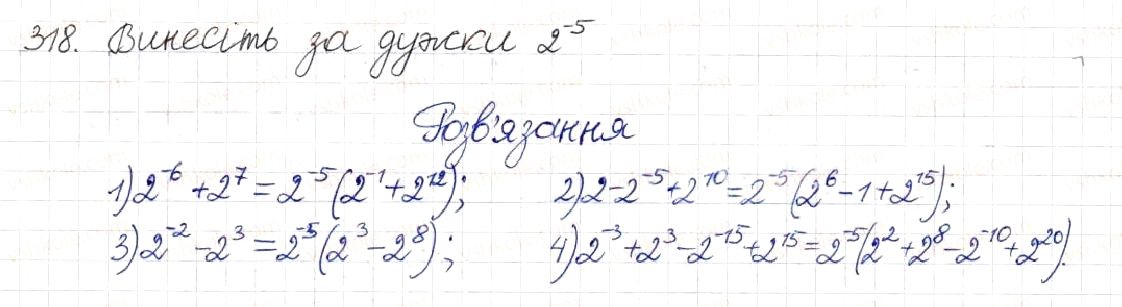 318. Винесіть за дужки 2⁻⁵
Розв'язання
1) 2⁻⁶ + 2⁷ = 2⁻⁵(2⁻¹ + 2¹²); 2) 2 - 2⁻⁵ + 2¹⁰ = 2⁻⁵(2⁶ - 1 + 2¹⁵);
3) 2⁻² - 2³ = 2⁻⁵(2³ - 2⁸); 4) 2⁻³ + 2³ - 2⁻¹⁵ + 2¹⁵ = 2⁻⁵(2² + 2⁸ - 2⁻¹⁰ + 2²⁰).